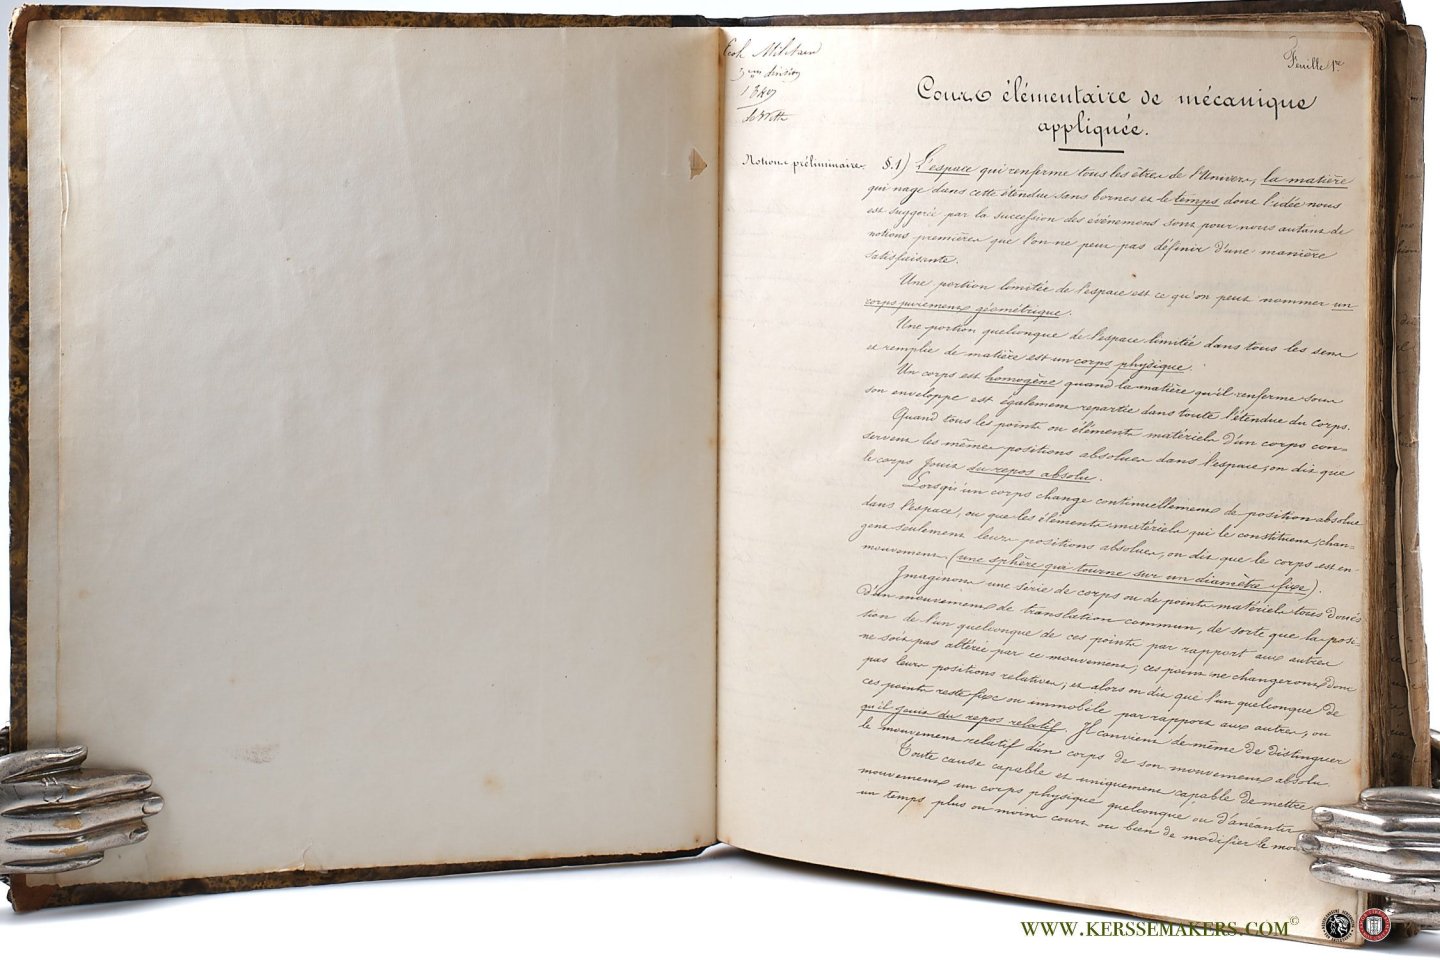 Ecole Militaire
3me division
Feuille 1re
Cours élémentaire de mécanique
appliquée.
Notions préliminaires.
§.1) L'espace qui renferme tous les êtres de l'Univers, la matière
qui nage dans cette étendue sans bornes et le temps dont l'idée nous
est suggeré par la succession des événemens sont pour nous autant de
notions premières que l'on ne peut pas définir d'une manière
satisfaisante.
Une portion limitée de l'espace est ce qu'on peut nommer un
corps purement géométrique.
Une portion quelconque de l'espace limitée dans tous les sens
et remplie de matière est un corps physique.
Un corps est homogène quand la matière qu'il renferme sous
son enveloppe est également repartie dans toute l'étendue du corps.
Quand tous les points ou éléments matériels d'un corps con-
servent les mêmes positions absolues dans l'espace, on dit que
le corps jouit du repos absolu.
Lorsqu'un corps change continuellement de position absolue
dans l'espace, ou que les éléments matériels qui le constituent, chan-
gent seulement leurs positions absolues, on dit que le corps est en
mouvement. (une sphère qui tourne sur un diamètre fixe).
Imaginons une série de corps ou de points matériels tous doués
d'un mouvement de translation commun, de sorte que la posi-
tion de l'un quelconque de ces points par rapport aux autres
ne soit pas altérée par ce mouvement, ces points ne changeront donc
pas leurs positions relatives, et alors on dit que l'un quelconque de
ces points reste fixe ou immobile par rapport aux autres, ou
qu'il jouit du repos relatif. Il convient de même de distinguer
le mouvement relatif d'un corps de son mouvement absolu.
Toute cause capable et uniquement capable de mettre
mouvement un corps physique quelconque ou d'anéantir
un temps plus ou moins court ou bien de modifier le mou
WWW.KERSSEMAKERS.COM©